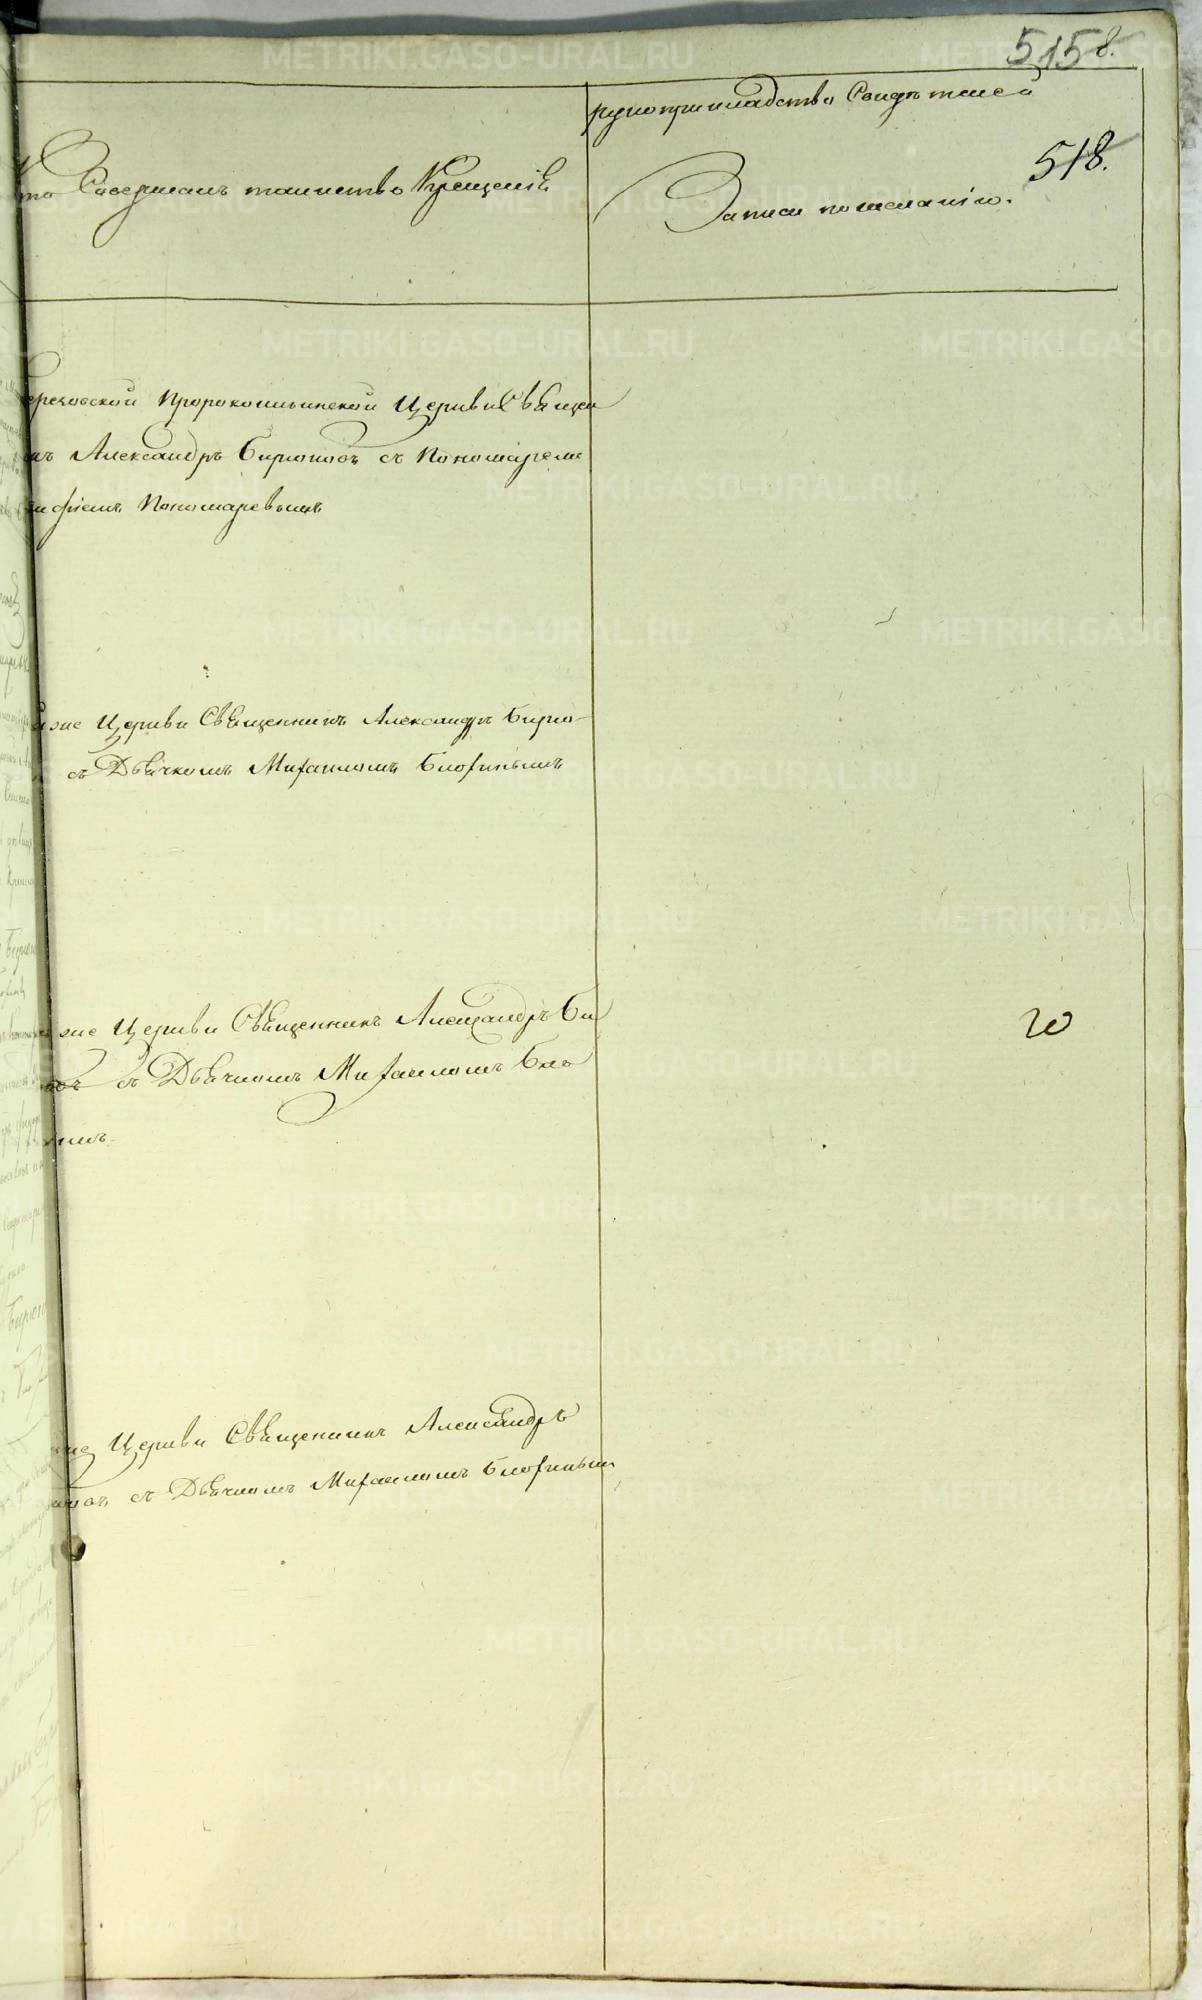 5158.
518.
Кто Совершалъ таинство Крещенія
рукоприкладство Свидѣтелей
Записи пожеланію.
Пророкоильинской Церкви Священ
Александръ Бирюковъ съ Пономаремъ
Пономаревымъ
же Церкви Священникъ Александръ Бирю-
съ Дьячкомъ Михаиломъ Блохинымъ
же Церкви Священникъ Александръ Би
съ Дьячкомъ Михаиломъ Бло
20
Церкви Священникъ Александръ
съ Дьячкомъ Михаиломъ Блохинымъ
METRIKI.GASO-URAL.RU